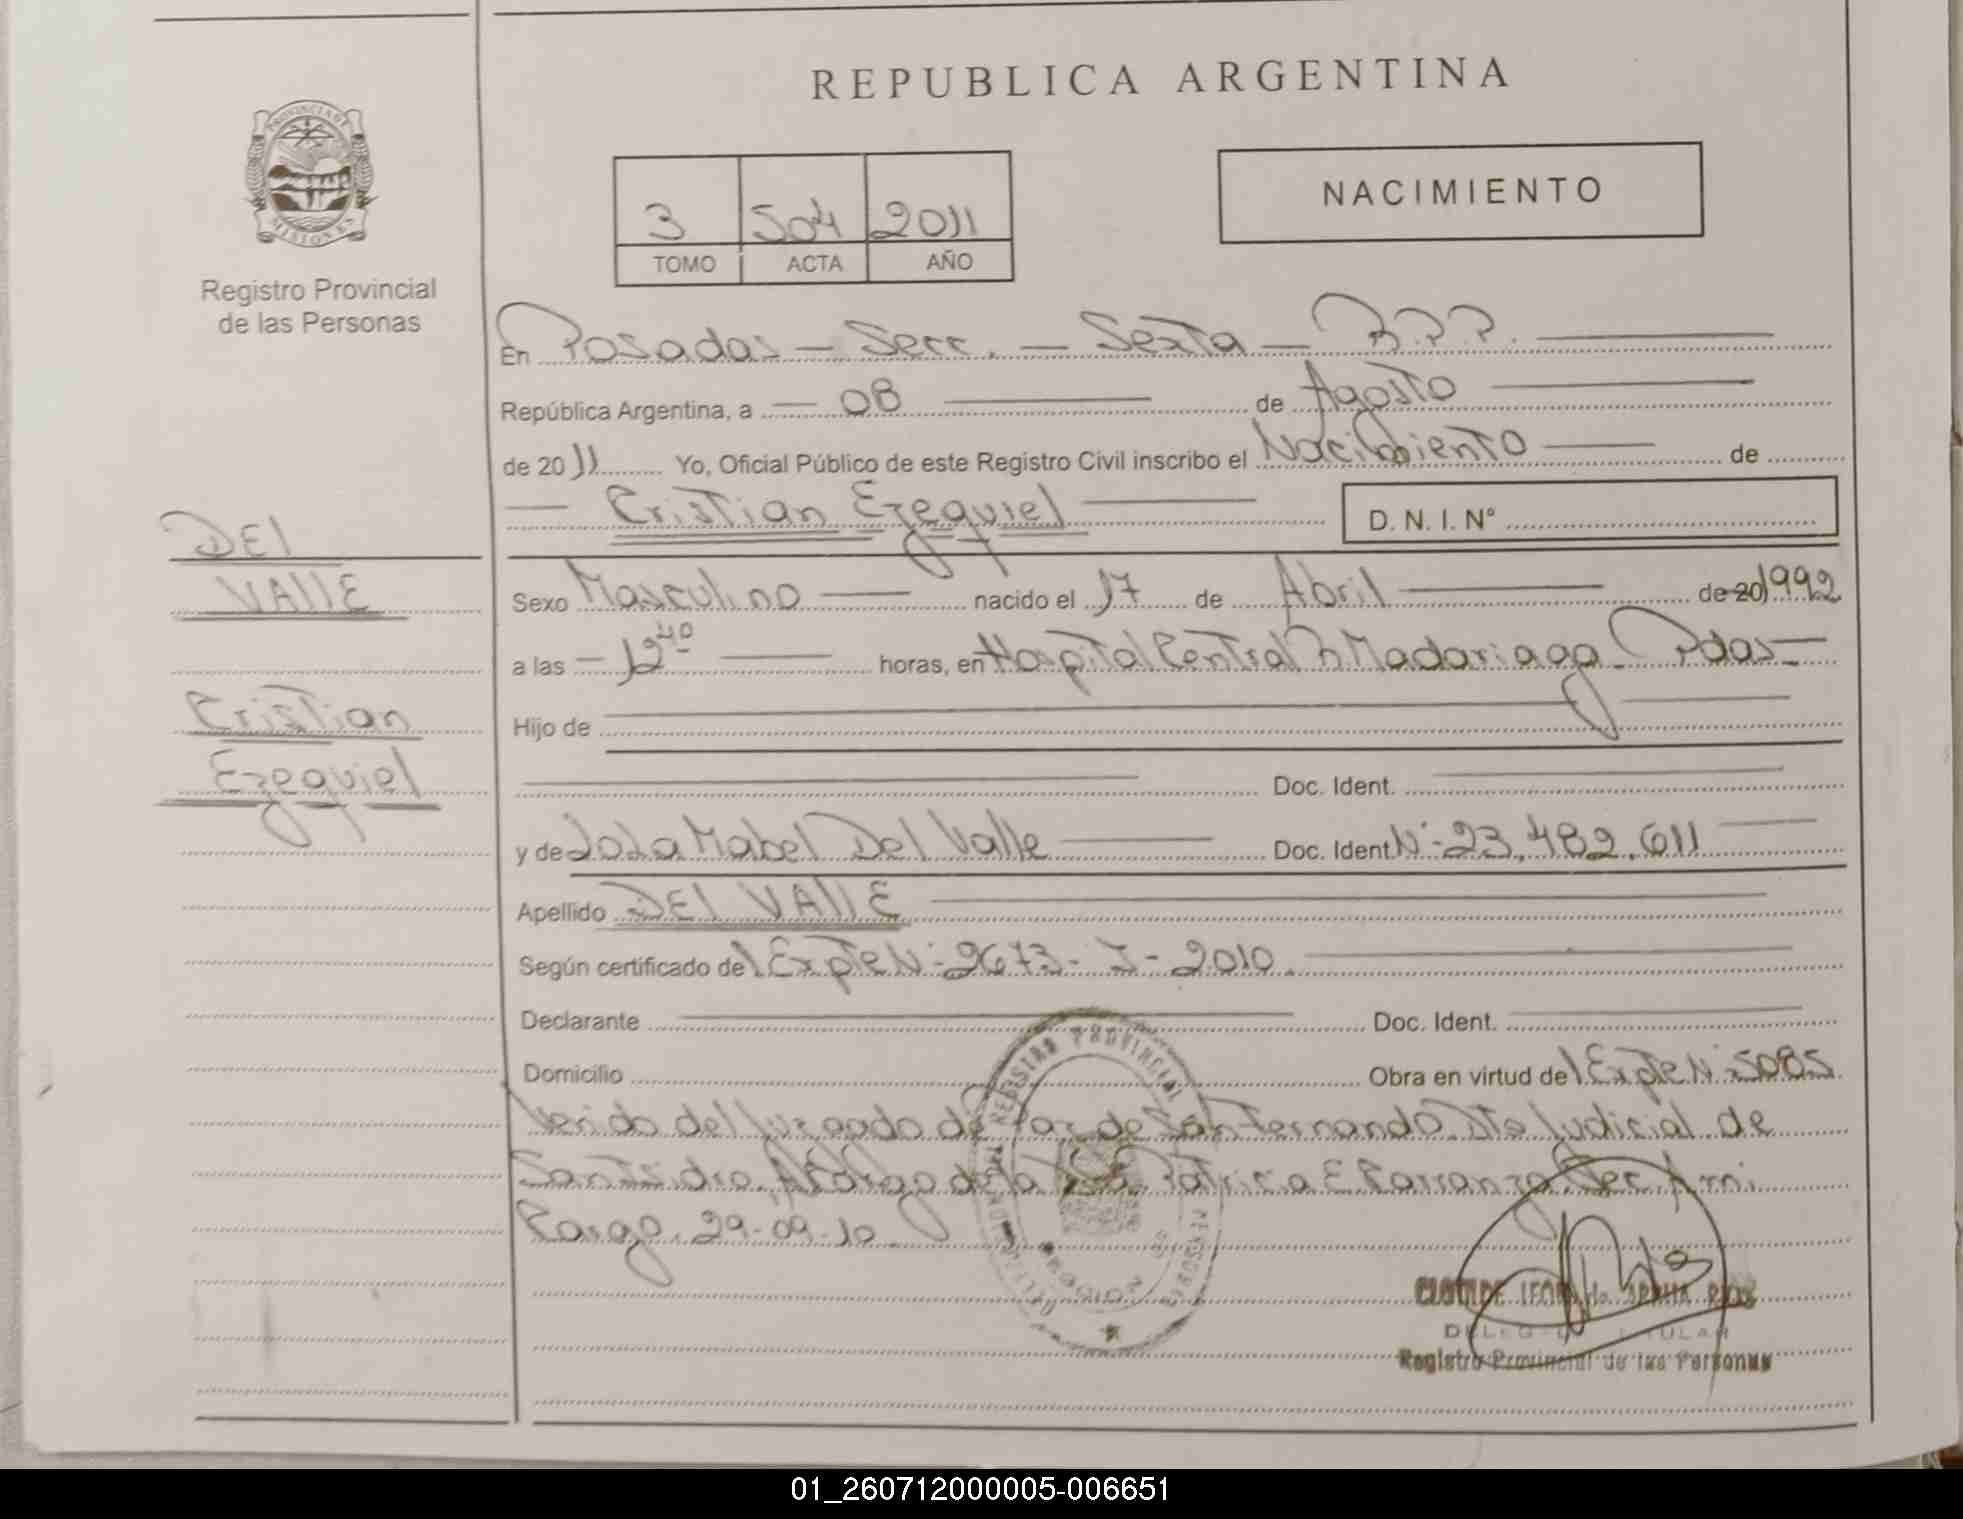 REPUBLICA ARGENTINA
PROVINCIA DE
MISIONES
Registro Provincial
de las Personas
3 504 2011
TOMO ACTA AÑO
NACIMIENTO
En Posadas - Secc. - Sexta - R.P.P.
República Argentina, a - 08 de Agosto
de 2011 Yo, Oficial Público de este Registro Civil inscribo el Nacimiento de
Cristian Ezequiel D. N. I. N°
DEl
VAllE
Cristian
Ezequiel
Sexo Masculino nacido el 17 de Abril de 20 1992
a las - 12 40 horas, en Hospital Central R Madariaga - Pdas -
Hijo de
Doc. Ident.
y de Lola Mabel Del Valle Doc. Ident N: 23.482.611
Apellido DEl VAllE
Según certificado de Expte N: 2673 - I - 2010.
Declarante Doc. Ident.
Domicilio Obra en virtud de Expte N: 5085
venido del Juzgado de Paz de San Fernando. Dto Judicial de
San Isidro. A Cargo de la Patricia E
Cargo. 29-09-10.
REGISTRO PROVINCIAL
Registro Provincial de las Personas
01_260712000005-006651